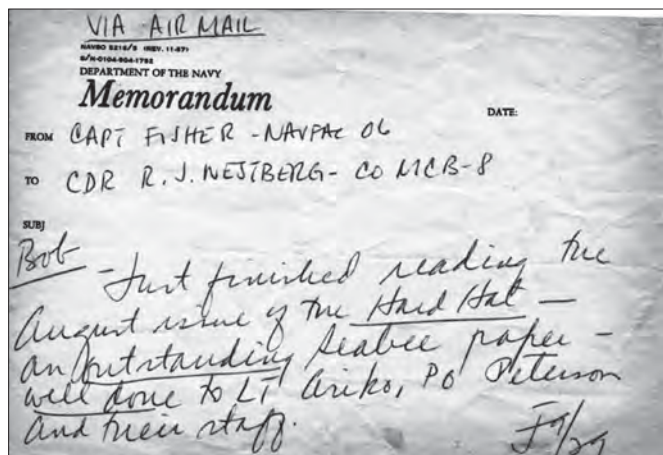 VIA AIR MAIL
NAVSO 5216/5 (REV. 11-67)
S/N-0104-904-1782
DEPARTMENT OF THE NAVY
Memorandum
DATE:
FROM CAPT FISHER - NAVFAC 06
TO CDR R. J. WESTBERG - CO MCB-8
SUBJ
Bob
- Just finished reading the
August issue of the Hard Hat —
an outstanding Seabee paper -
well done to LT Ariko, PO Peterson
and their staff.